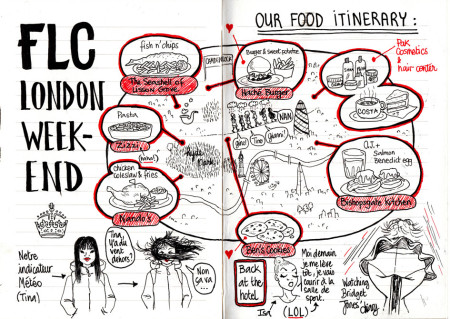 FLC
LONDON
WEEK-
END
OUR FOOD ITINERARY :
fish n' chips
The Seashell of
Lisson Grove
Burger & sweet potatoe
Haché Burger
Pak
Cosmetics
& hair center
COSTA
Pasta
Zizzi
(miam!)
Hyde
Park
IVAN
Tino
chicken
coleslaw & fries
O.J. +
Salmon
Benedict egg
Bishopsgate Kitchen
Ben's Cookies
Notre
indicateur
Météo
(Tina)
Tina,
Y'a du
vent
dehors?
Non
ça va...
Back
at the
hotel
Isa
Moi demain
je me lève
tôt, je vais
courir à la
salle de
sport.
(LOL)
Watching
Bridget
Jones' diary